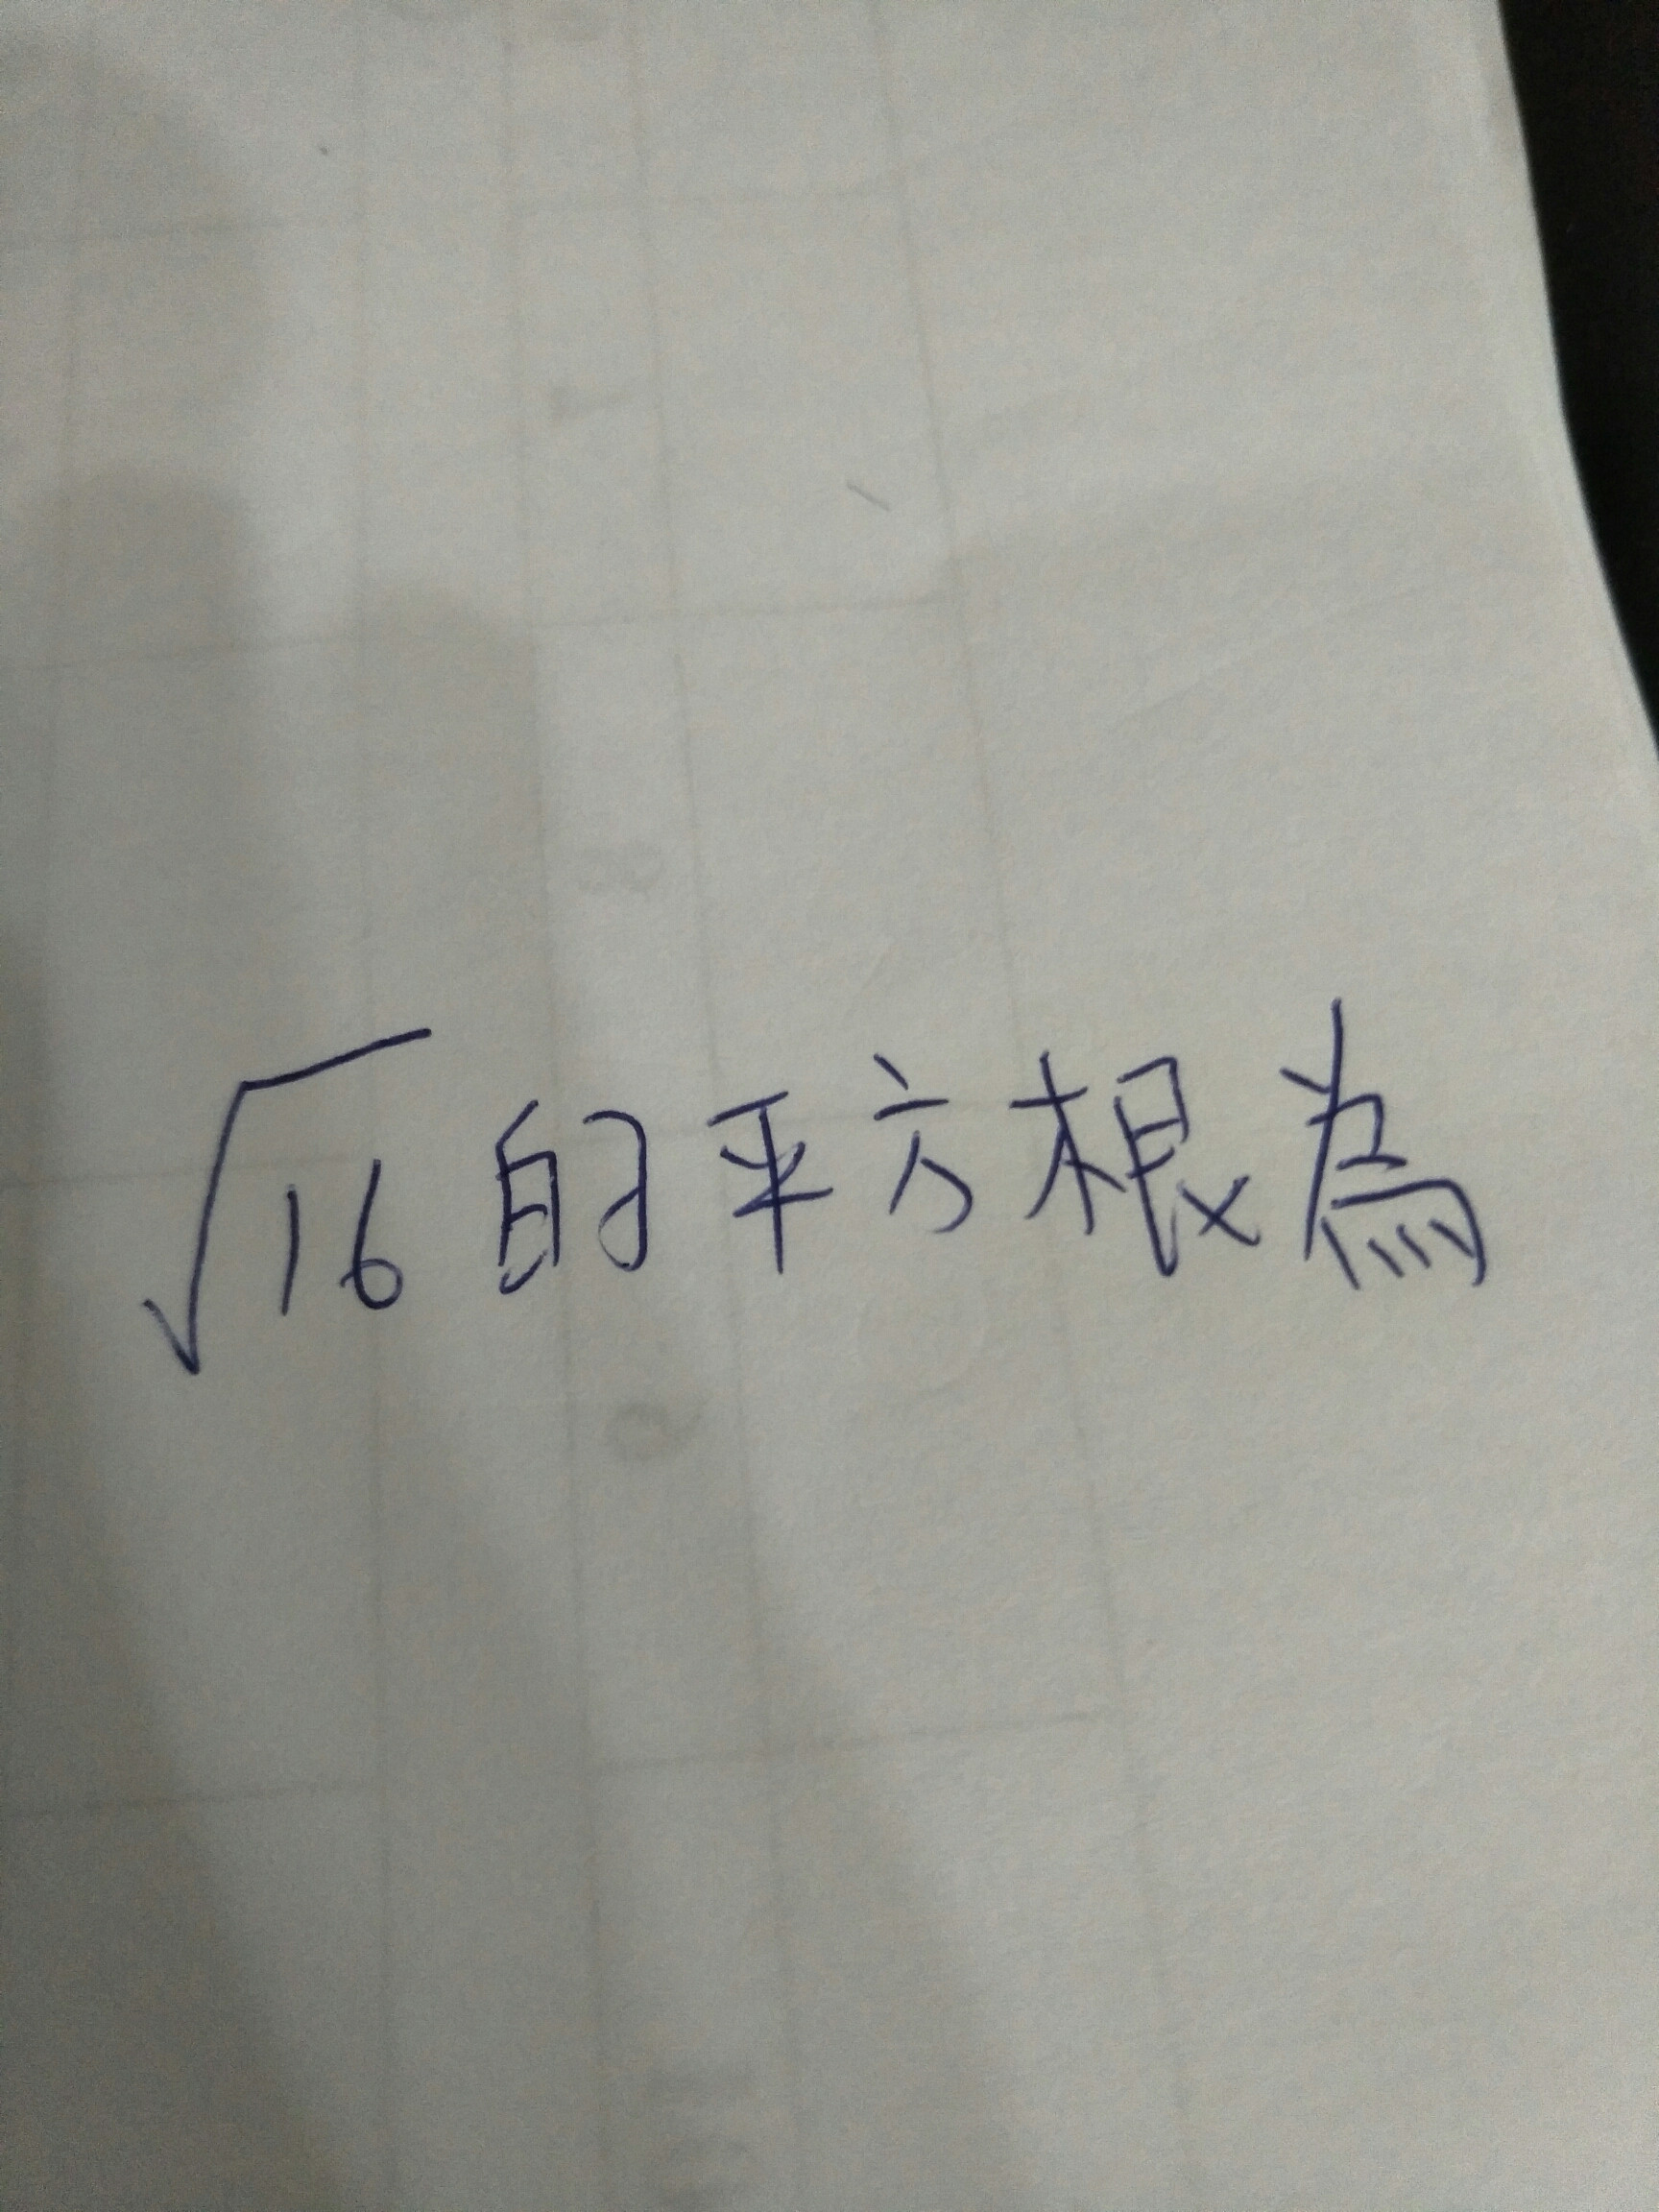 √16的平方根為